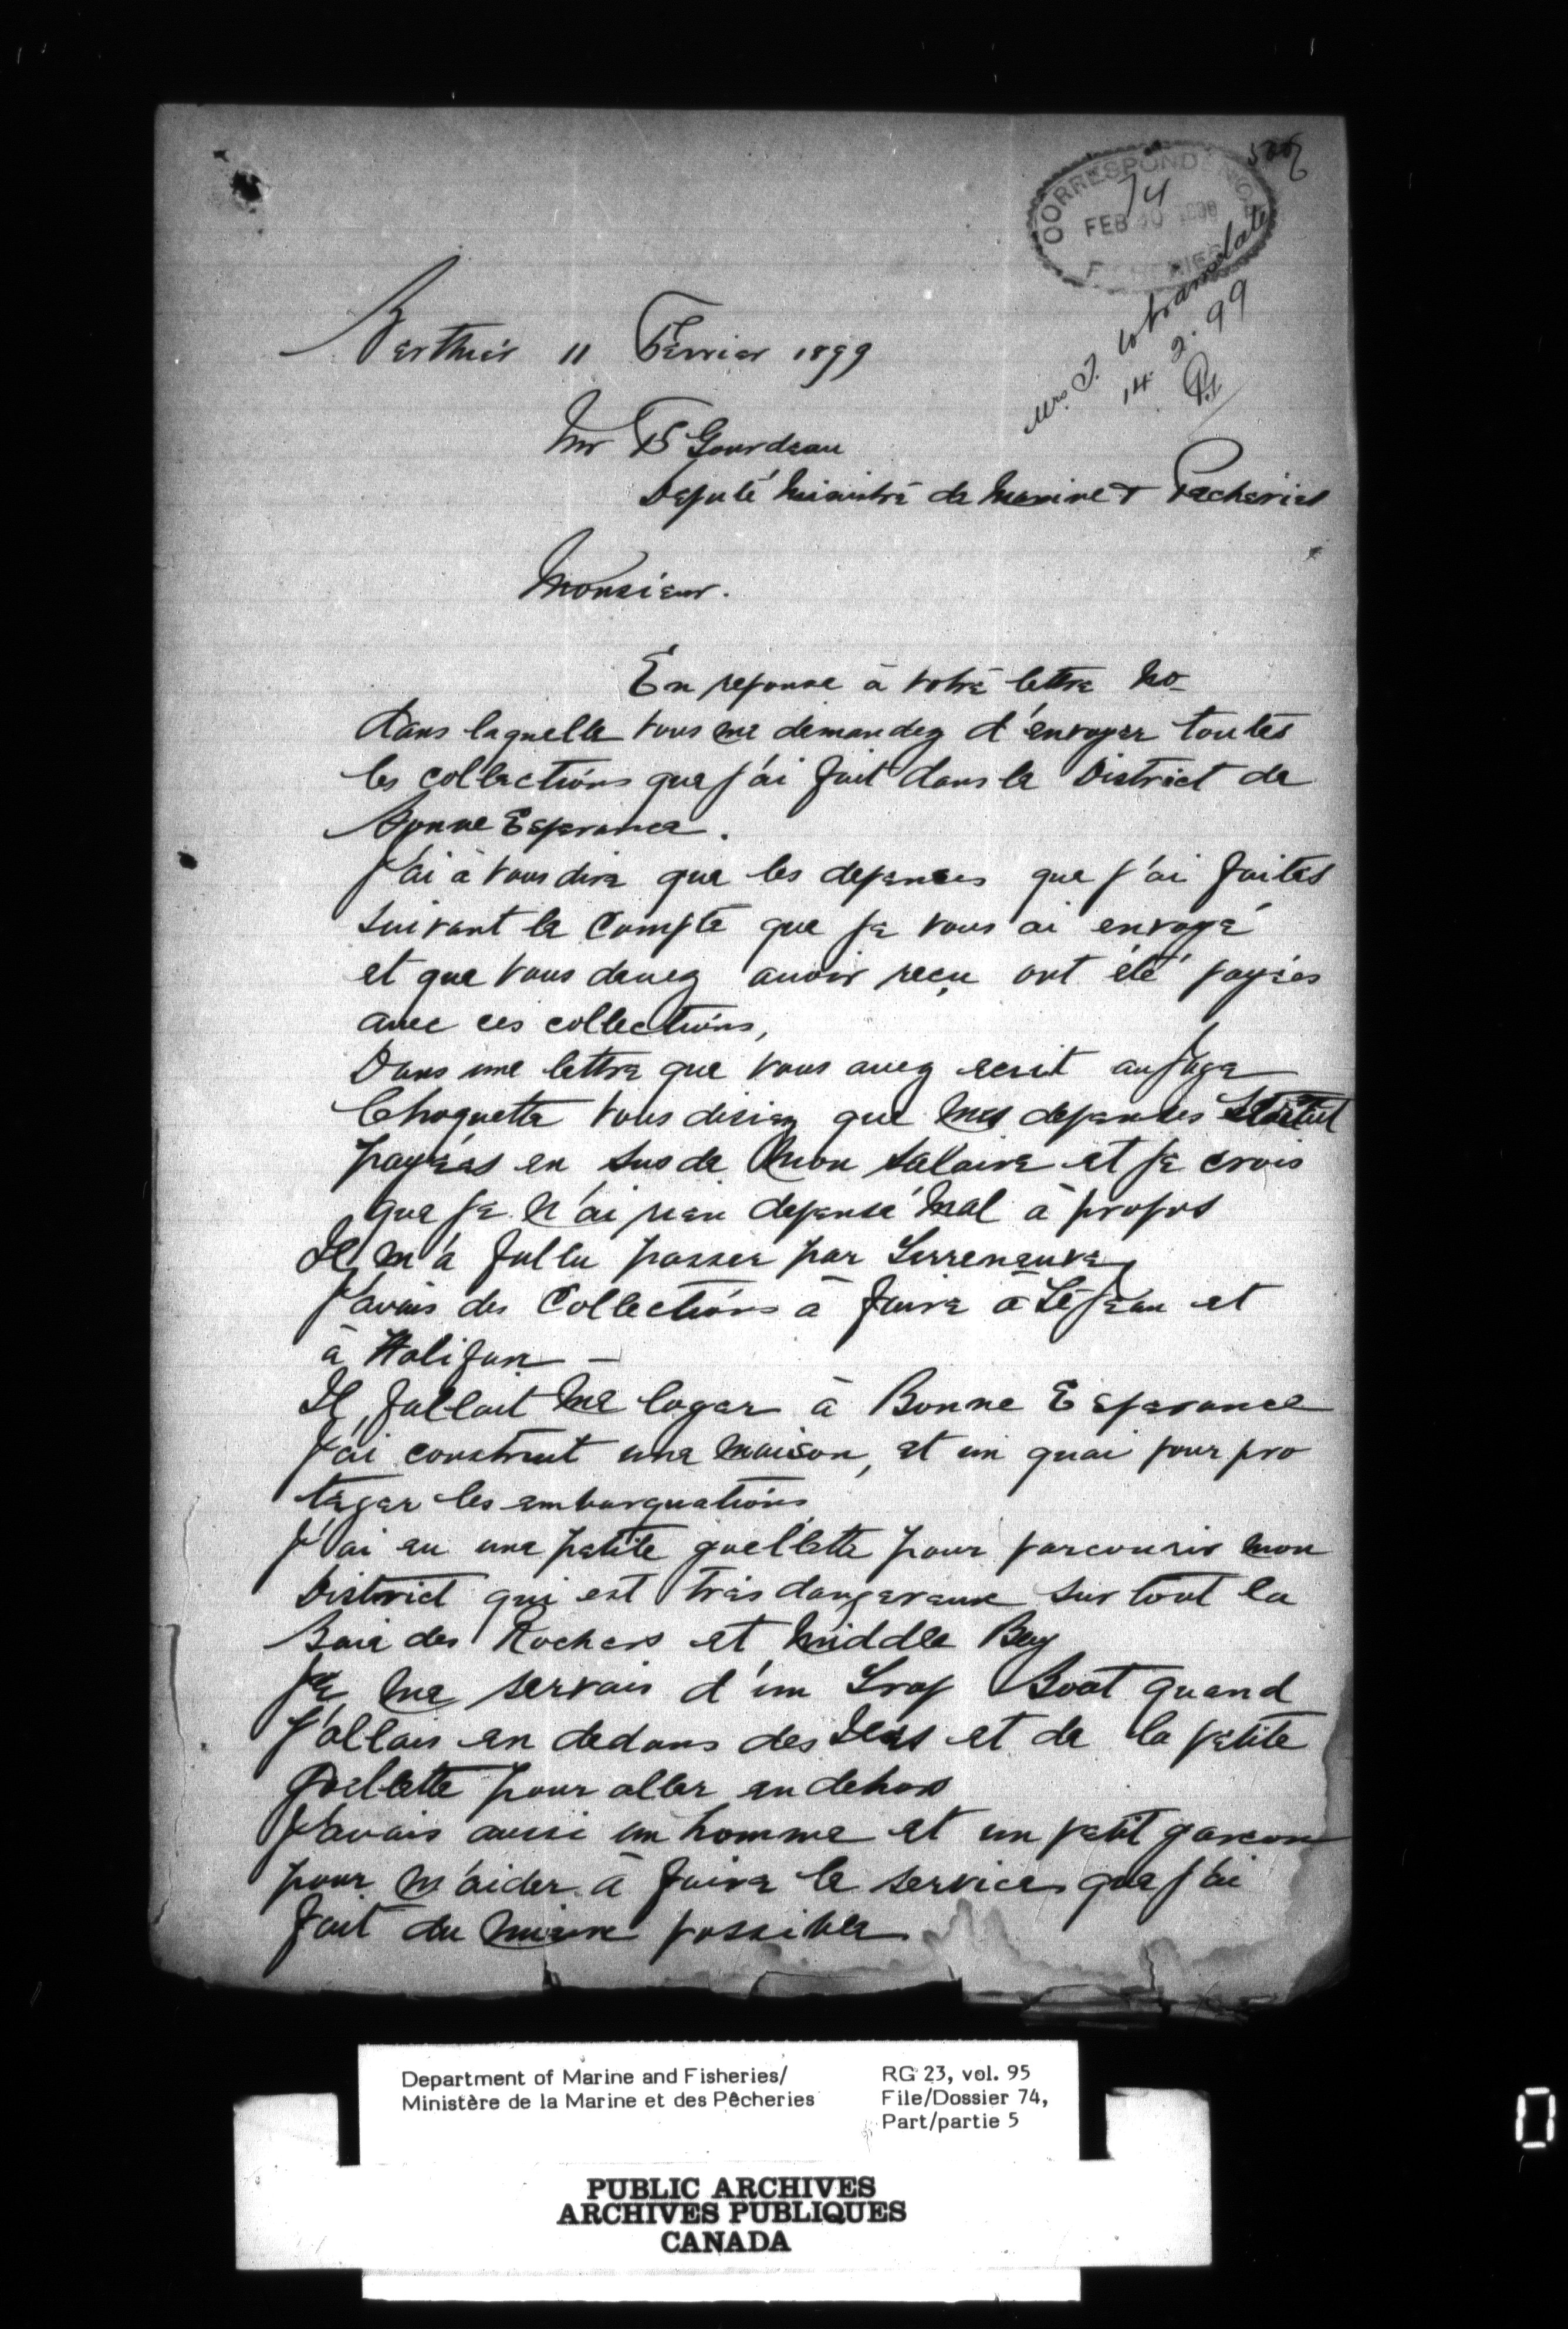 CORRESPONDENCE
74
FEB 10 1899
FISHERIES
Mrs. T. to translate
14. 2. 99
Berthier 11 Fevrier 1899
Mr F Gourdeau
Deputé Ministre de Marine & Pecheries
Monsieur.
En reponse à votre lettre No_
dans laquelle vous me demandez d'envoyer toutes
les collections que j'ai fait dans le District de
Bonne Esperance.
J'ai à vous dire que les depenses que j'ai faites
suivant le Compte que je vous ai envoyé
et que vous devez avoir reçu ont été payées
avec ces collections,
Dans une lettre que vous avez ecrit au Juge
Choquette vous disiez que mes depenses etaient
payées en sus de mon salaire et je crois
que je n'ai rien depensé mal à propos
Il m'a fallu passer par Terreneuve
J'avais des Collections à faire à St Jean et
à Halifax _
Il fallait me loger à Bonne Esperance
J'ai construit une maison, et un quai pour pro
teger les embarquations
J'ai eu une petite guellette pour parcourir mon
District qui est très dangereux surtout la
Baie des Rochers et Middle Bay
Je me servais d'un Trap Boat quand
j'allais en dedans des Iles et de la petite
Goellette pour aller en dehors
J'avais aussi un homme et un petit garcon
pour m'aider à faire le service que j'ai
fait du mieux possible
Department of Marine and Fisheries/
Ministère de la Marine et des Pêcheries
RG 23, vol. 95
File/Dossier 74,
Part/partie 5
PUBLIC ARCHIVES
ARCHIVES PUBLIQUES
CANADA
0